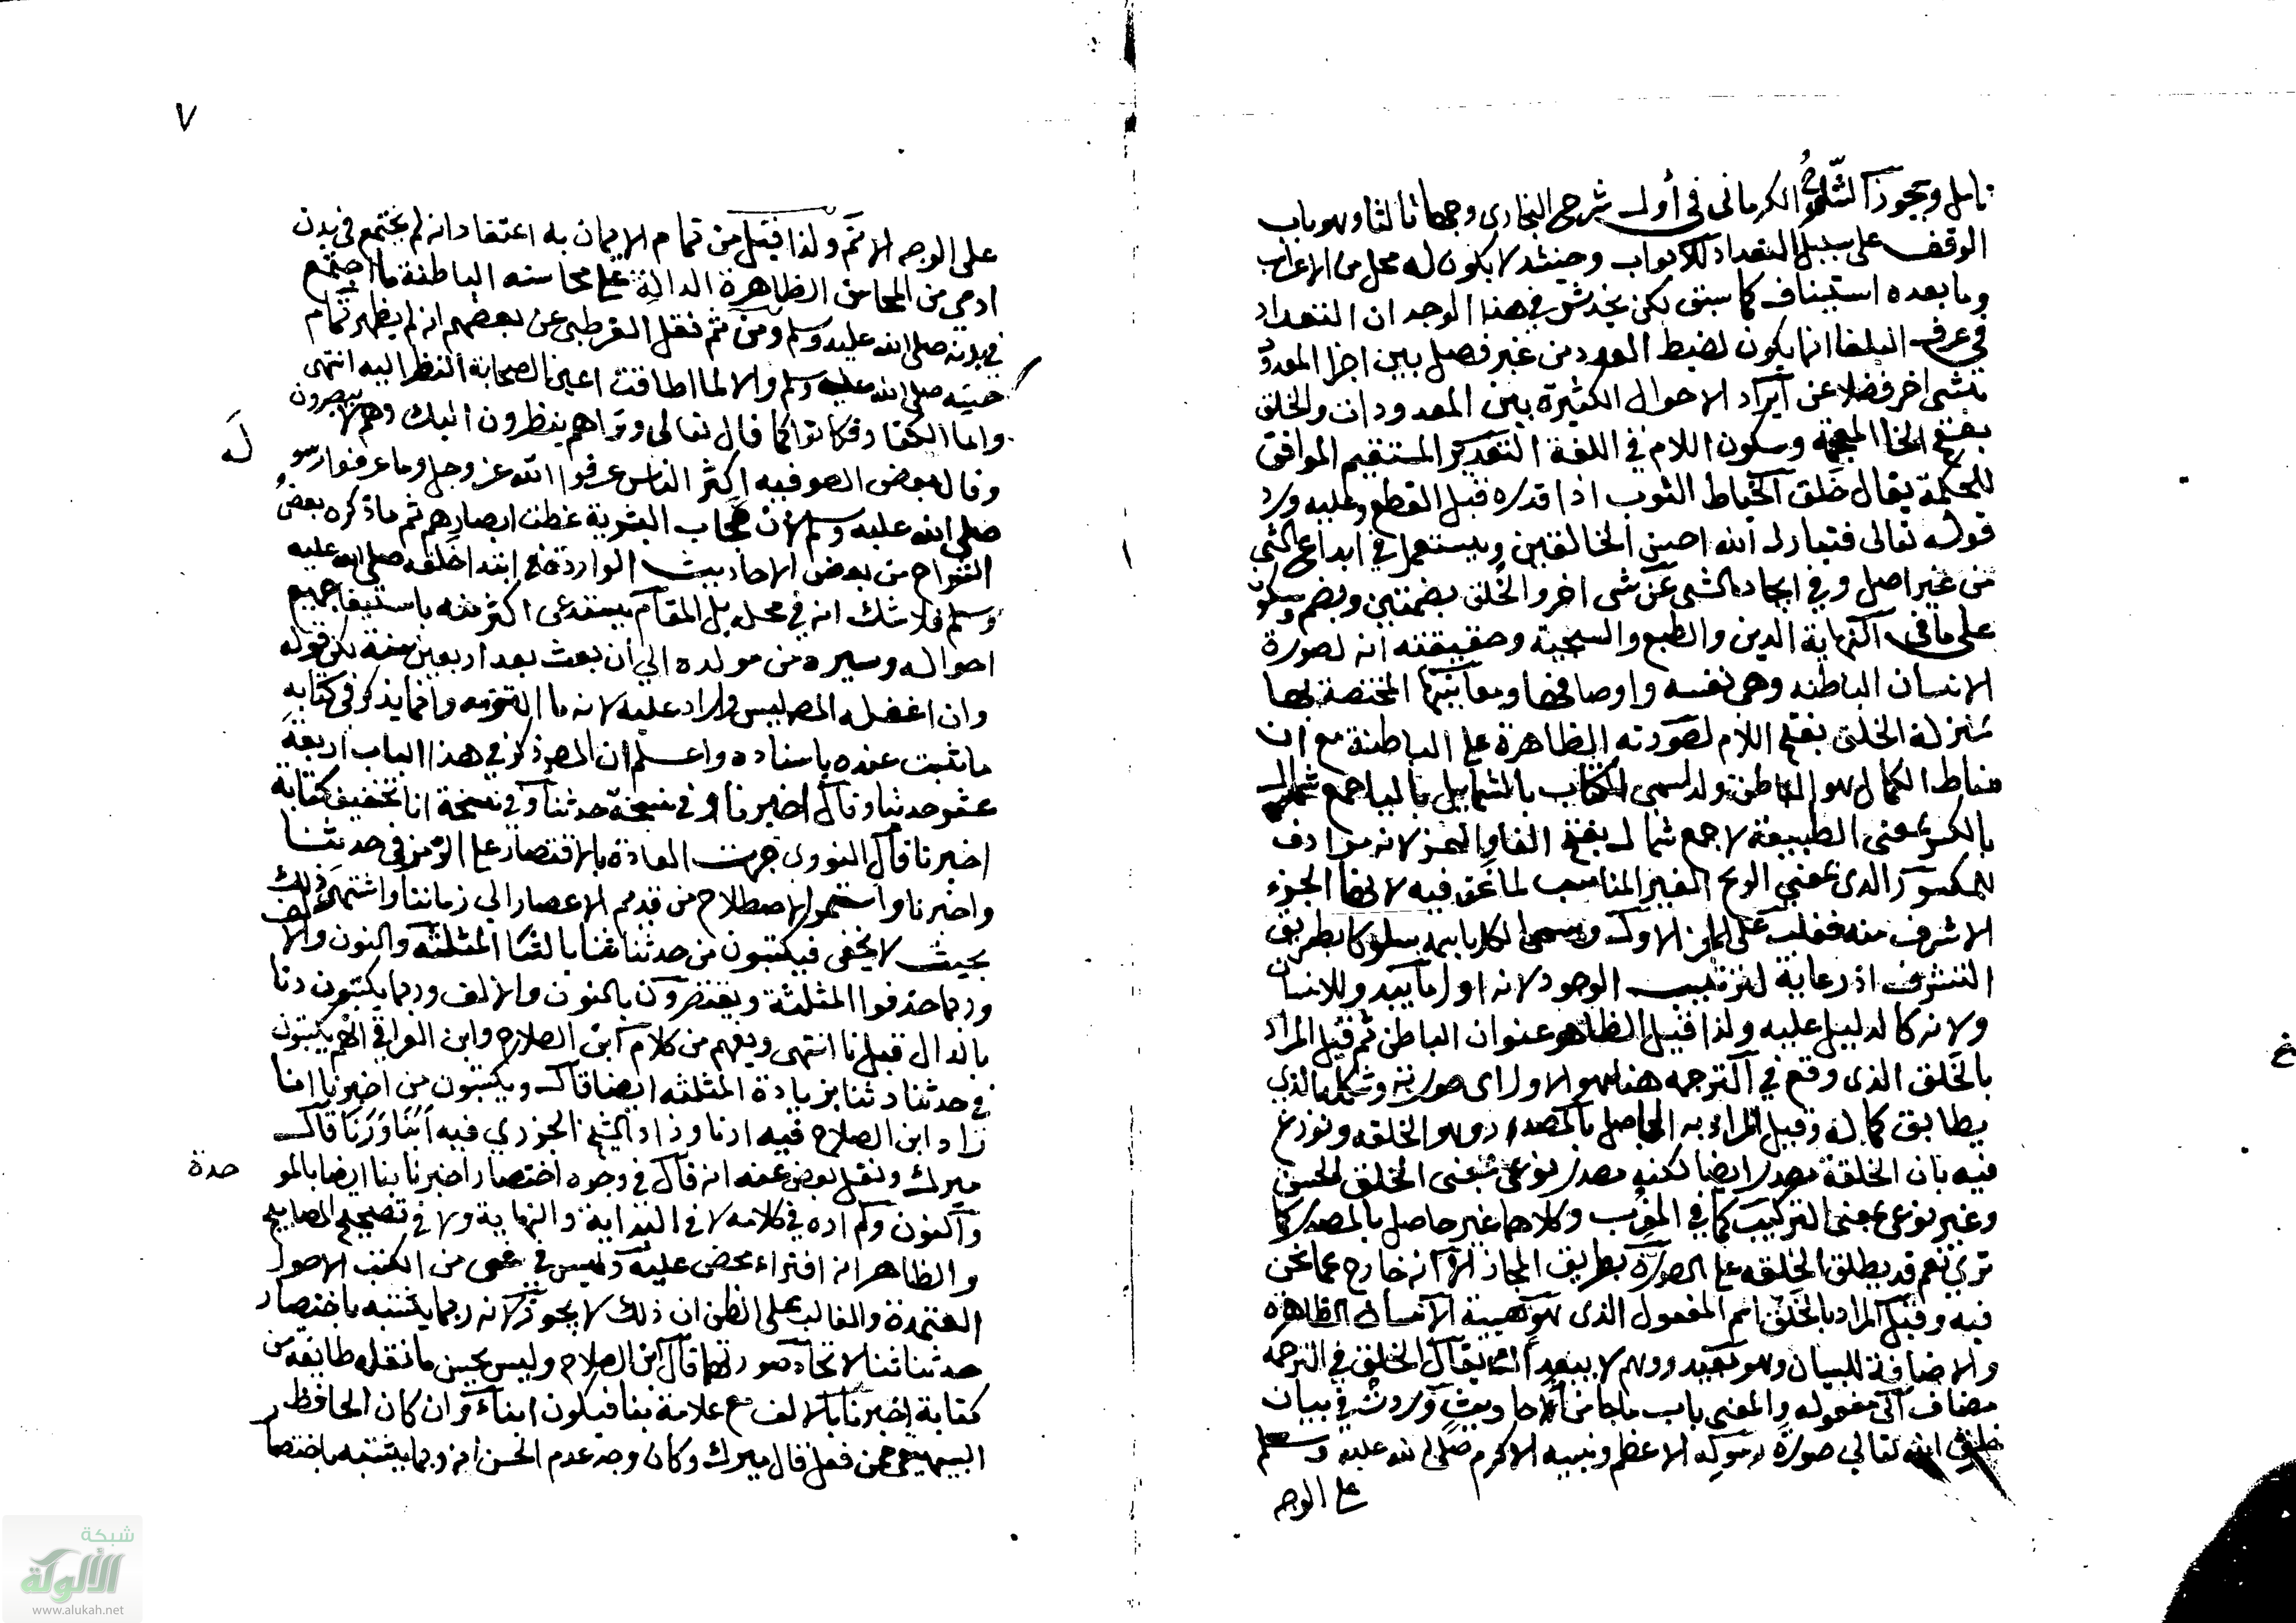 تامل وتجوز الشيخ الكرماني في أول شرح البخاري وجها ثالثا وهو باب
الوقف على سبيل التعداد للابواب وحينئذ لا يكون له محل من الاعراب
وما بعده استيناف كما سبق لكن يخدش في هذا الوجه ان التعداد
في عرف البلغا انما يكون لضبط العدد من غير فصل بين اجزا المعدود
بشي اخر فضلا عن ايراد الاحوال الكثيرة بين المعدودات والخلق
بفتح الخا المعجمة وسكون اللام في اللغة التقدير المستقيم الموافق
للحكمة يقال خلق الخياط الثوب اذا قدره قبل القطع وعليه ورد
قوله تعالى فتبارك الله احسن الخالقين ويستعمل في ابداع الشي
من غير اصل وفي ايجاد الشي عن شي اخر والخلق بضمتين وبضم وسكون
على ما في النهاية الدين والطبع والسجية وحقيقته انه لصورة
الانسان الباطنه وهي نفسه واوصافها ومعانيها المختصة بها
بمنزلة الخلق بفتح اللام لصورته الظاهرة على الباطنة مع ان
مناط الكمال هو الباطن ولذ سمى الكتاب بالشمايل بالياء جمع شمال
بالكسر بمعنى الطبيعة لا جمع شمال بفتح الفا والهمز لانه مرادف
للمكسور الذى بمعنى الريح الغير المناسب لما نحن فيه لانها الجزء
الاشرف منه فغلب على الجز الاول وسمى الكل باسمه سلوكا بطريق
التشرف اذ رعاية لترتيب الوجود لانه اول ما يبدو للانسان
ولانه كالدليل عليه ولذا قيل الظاهر عنوان الباطن ثم قيل المراد
بالخلق الذى وقع في الترجمه هنا هو الاول اى صورته وشكله الذى
يطابق كماله وقيل المراد به الحاصل بالمصدر وهو الخلقه ونوزع
فيه بان الخلقة مصدر ايضا لكنه مصدر نوعي بمعنى الخلق الحسن
وغير نوعي بمعنى التركيب كما في المغرب وكلاهما غير حاصل بالمصدر كما
ترى نعم قد يطلق الخلقه على الصورة بطريق المجاز الا انه خارج عما نحن
فيه وقيل المراد بالخلق اسم المفعول الذى هو هيية الانسان الظاهرة
والاضافة للبيان وهو بعيد ووهم لا يبعد ان يقال الخلق في الترجمه
مضاف الى مفعوله والمعنى باب ما جا من الاحاديث وردت في بيان
خلق الله تعالى صورة رسوله الاعظم ونبيه الاكرم صلى الله عليه وسلم
على الوجه
غ
٧
على الوجه الاتم ولذا قيل من تمام الايمان به اعتقاد انه لم يجتمع في بدن
ادمي من المحاسن الظاهرة الدالة على محاسنه الباطنة ما اجتمع
في بدنه صلى الله عليه وسلم ومن ثم نقل القرطبي عن بعضهم انه لم يظهر تمام
حسنه صلى الله عليه وسلم والا لما اطاقت اعين الصحابة النظر اليه انتهى
واما الكفار فكانوا كما قال تعالى وتراهم ينظرون اليك وهم لا يبصرون
وقال بعض الصوفيه اكثر الناس عرفوا الله عز وجل وما عرفوا رسو
له
صلى الله عليه وسلم لان حجاب البشرية غطت ابصارهم ثم ما ذكره بعض
الشراح من بعض الاحاديث الواردة في ابتدا خلقه صلى الله عليه
وسلم فلا شك انه في محله بل المقام يستدعى اكثر منه باستيفا جميع
احواله وسيره من مولده الى أن بعث بعد اربعين سنة لكن قوله
وان اغفله المص ليس واراد عليه لانه ما التزمه وانما يذكر في كتابه
ما ثبت عنده باسناده واعلم ان المص ذكر في هذا الباب اربعة
عشر حدثنا وقال اخبرنا وفي نسخة حدثنا وفي نسخة انا تخفيف كتابة
اخبرنا قال النووى جرت العادة بالاقتصار على الرمز في حدثنا
واخبرنا واستمر الاصطلاح من قديم الاعصار الى زماننا واشتهر ذلك
بحيث لا يخفى فيكتبون من حدثنا ثنا بالثا المثلثه والنون والالف
وربما حذفوا المثلثة ويقتصرون بالنون والالف وربما يكتبون دنا
بالدال قبل نا انتهى ويفهم من كلام ابن الصلاح وابن العراقي انهم يكتبون
في حدثنا دثنا بزيادة المثلثه ايضا قال ويكتبون من اخبرنا انا
زاد ابن الصلاح فيه ارنا وزاد الشيخ الجزري فيه ابنا ورنا قال
ميرك ونقل بعض عنه انه قال في وجوه اختصار اخبرنا بنا ايضا بالمو
حدة
والنون ولم اره في كلامه لا في البداية والنهاية ولا في تصحيح المصابيح
والظاهر انه افتراء محض عليه وليس في شى من الكتب الاصول
المعتمدة والغالب على الظن ان ذلك لا يجوز لانه ربما يشتبه باختصار
حدثنا ثنا لاتحاد صورتهما قال ابن الصلاح وليس يحسن ما نقله طايفة من
كتابة اخبرنا بالالف مع علامة بنا فيكون ابناء وان كان الحافظ
البيهقي ممن فعل قال ميرك وكان وجه عدم الحسن انه ربما يشتبه باختصا
شبكة
الألوكة
www.alukah.net